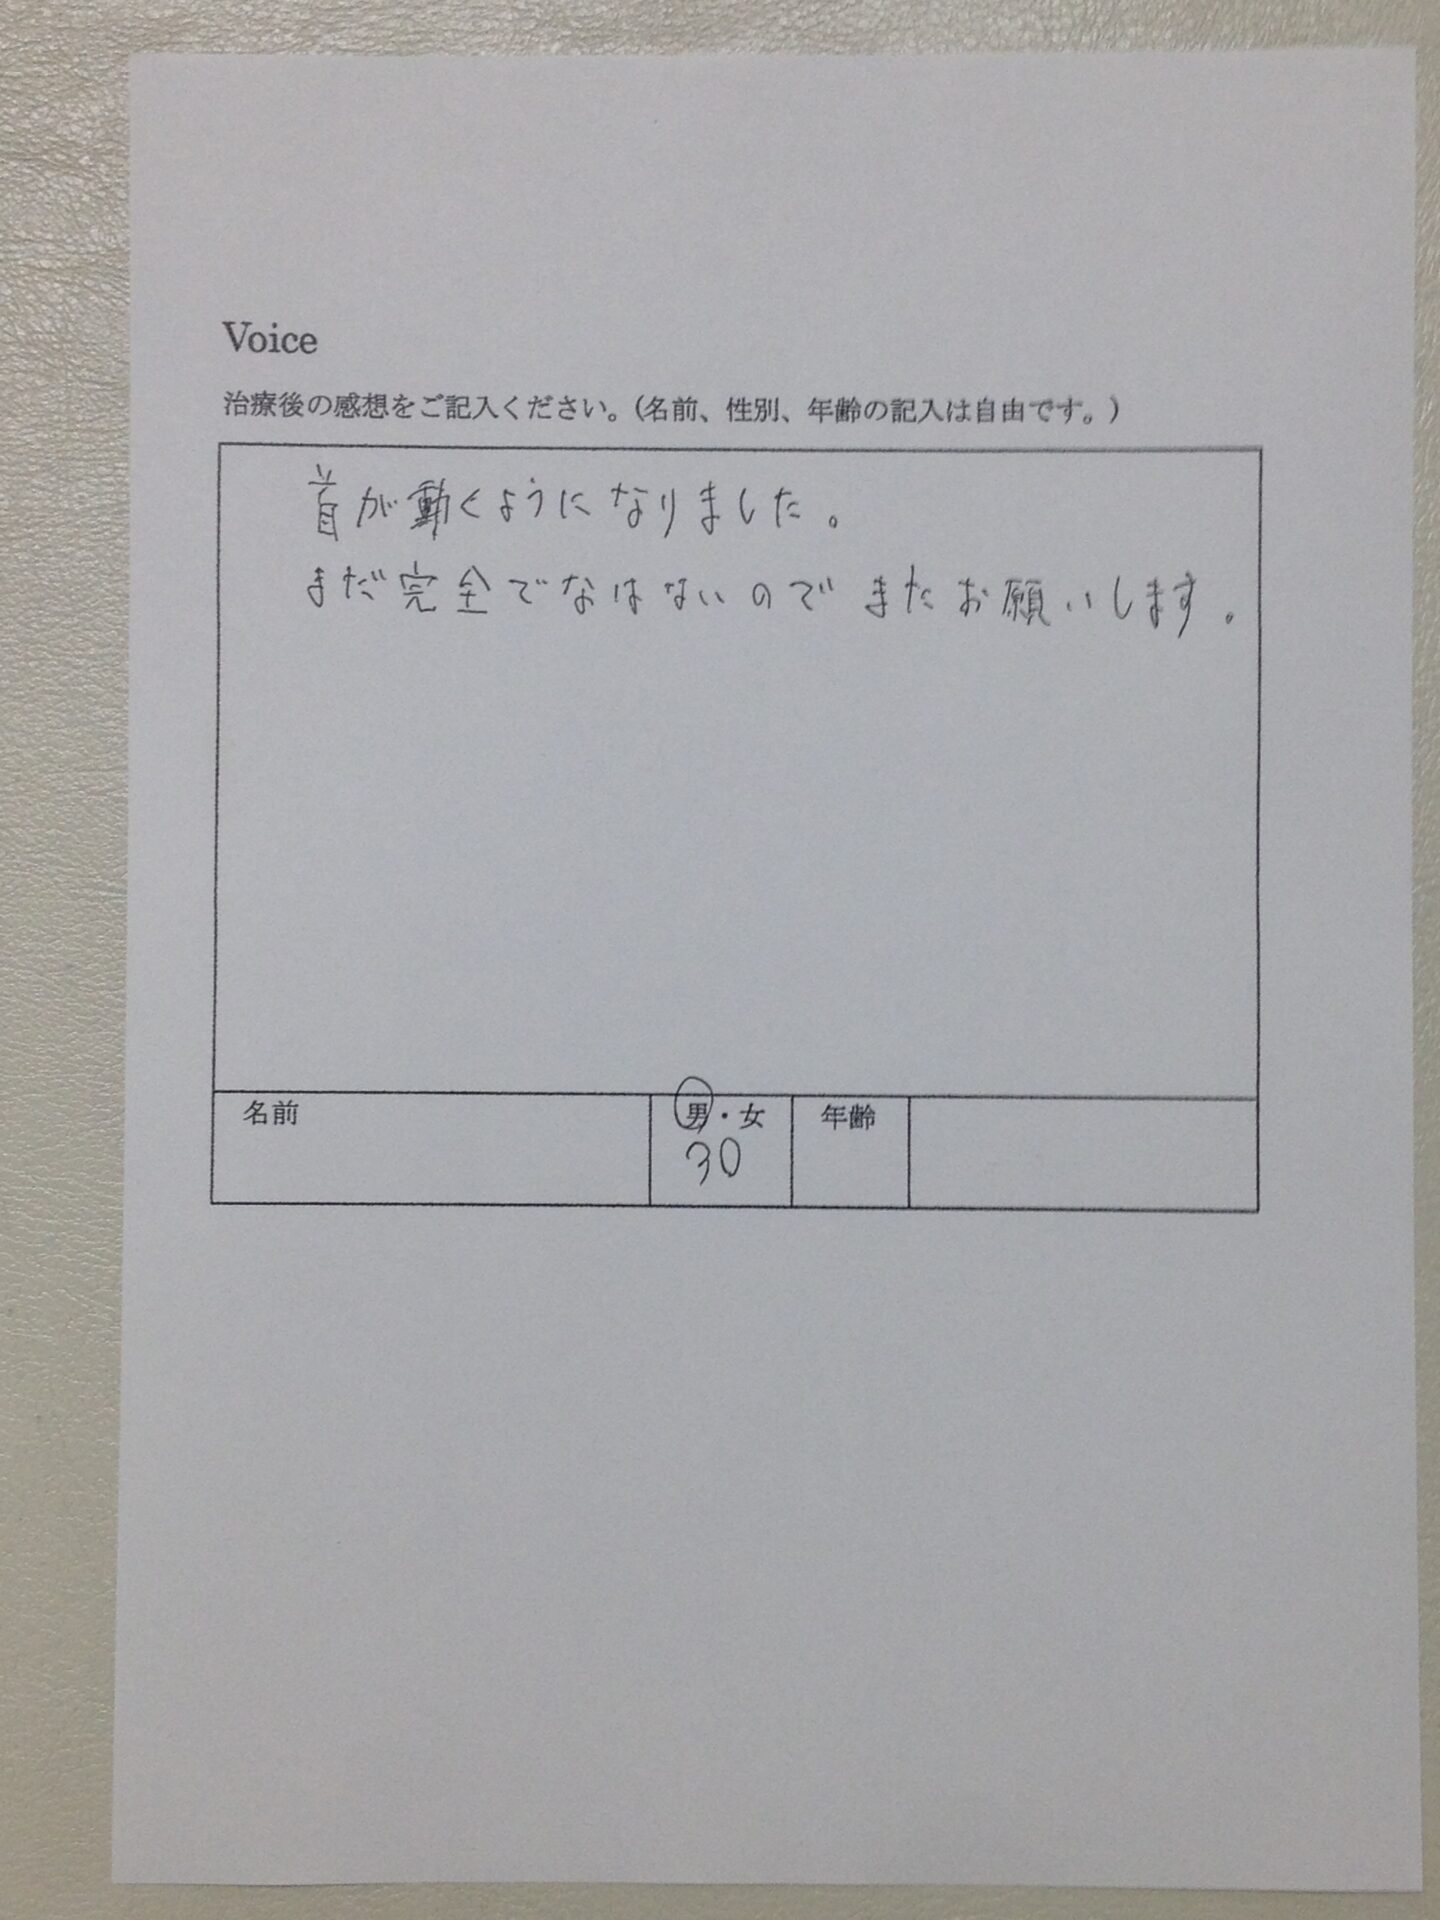 Voice
治療後の感想をご記入ください。(名前、性別、年齢の記入は自由です。)
首が動くようになりました。
まだ完全でなはないのでまたお願いします。
名前
男・女
年齢
30